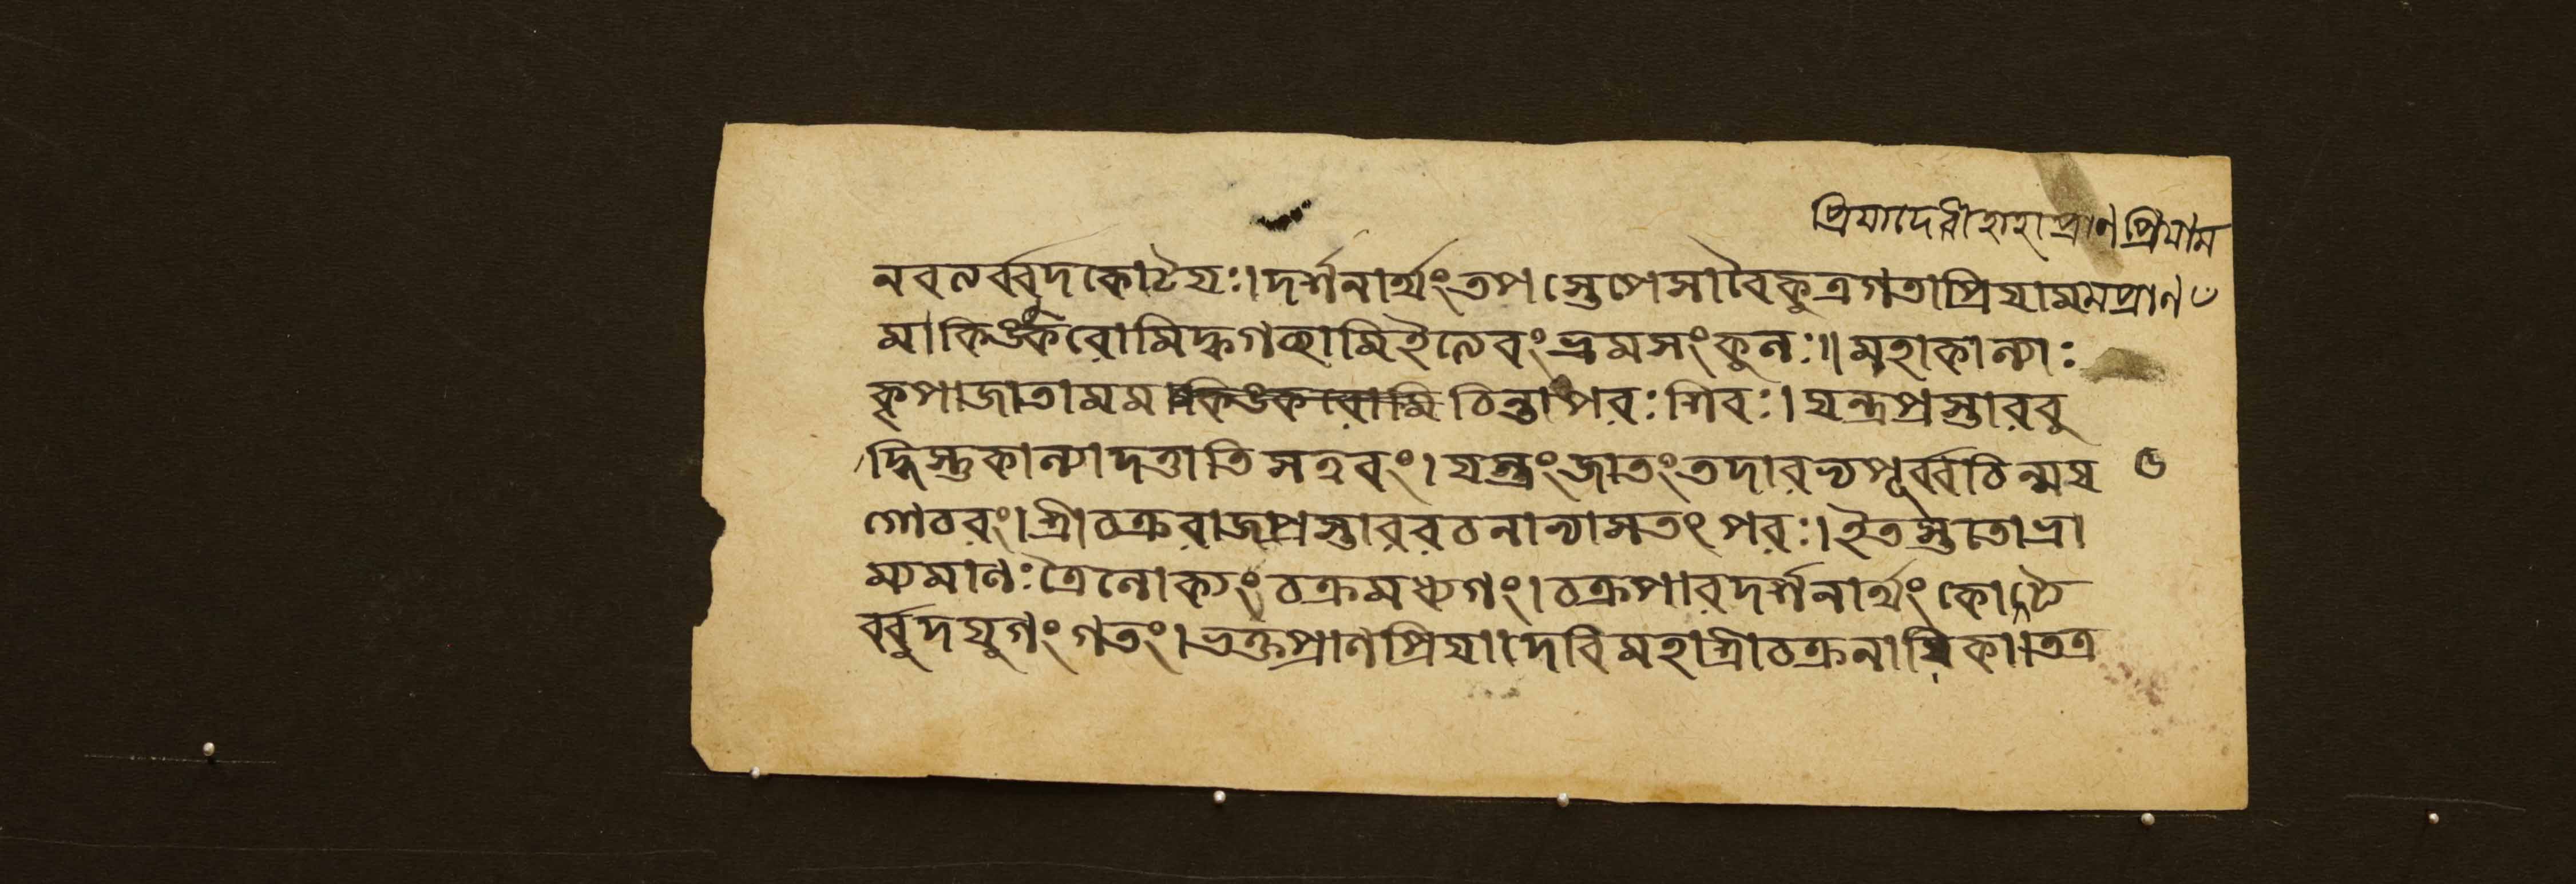 প্রিয়াদেবীহাহাপ্রাণপ্রিয়ামম
নবলর্ব্বুদকোটয়ঃ।দর্শনার্থংতপস্তেপেসাবৈকুত্রগতাপ্রিয়ামমপ্রাণ
মাকিঙ্করোমিক্বগচ্ছামিইত্যেবংভ্রমসংকুলঃ॥মহাকাল্যাঃ
কৃপাজাতামম কিঙকরোমি চিন্তাপরঃশিবঃ।যন্ত্রপ্রস্তারবু
দ্ধিস্তুকাল্যাদত্তাতিসত্বরং।যন্ত্রংজাতংতদারভ্যপূর্ব্বচিন্ময়
গোচরং।শ্রীচক্ররাজপ্রস্তাররচনান্যাসতৎপরঃ।ইতস্ততোভ্রা
ম্যমাণঃত্রৈলোক্যংচক্রমধ্যগং।চক্রপারদর্শনার্থংকোটৈ
র্ব্বুদযুগংগতং।ভক্তপ্রাণপ্রিয়াদেবিমহাশ্রীচক্রনায়িকা।তত্র